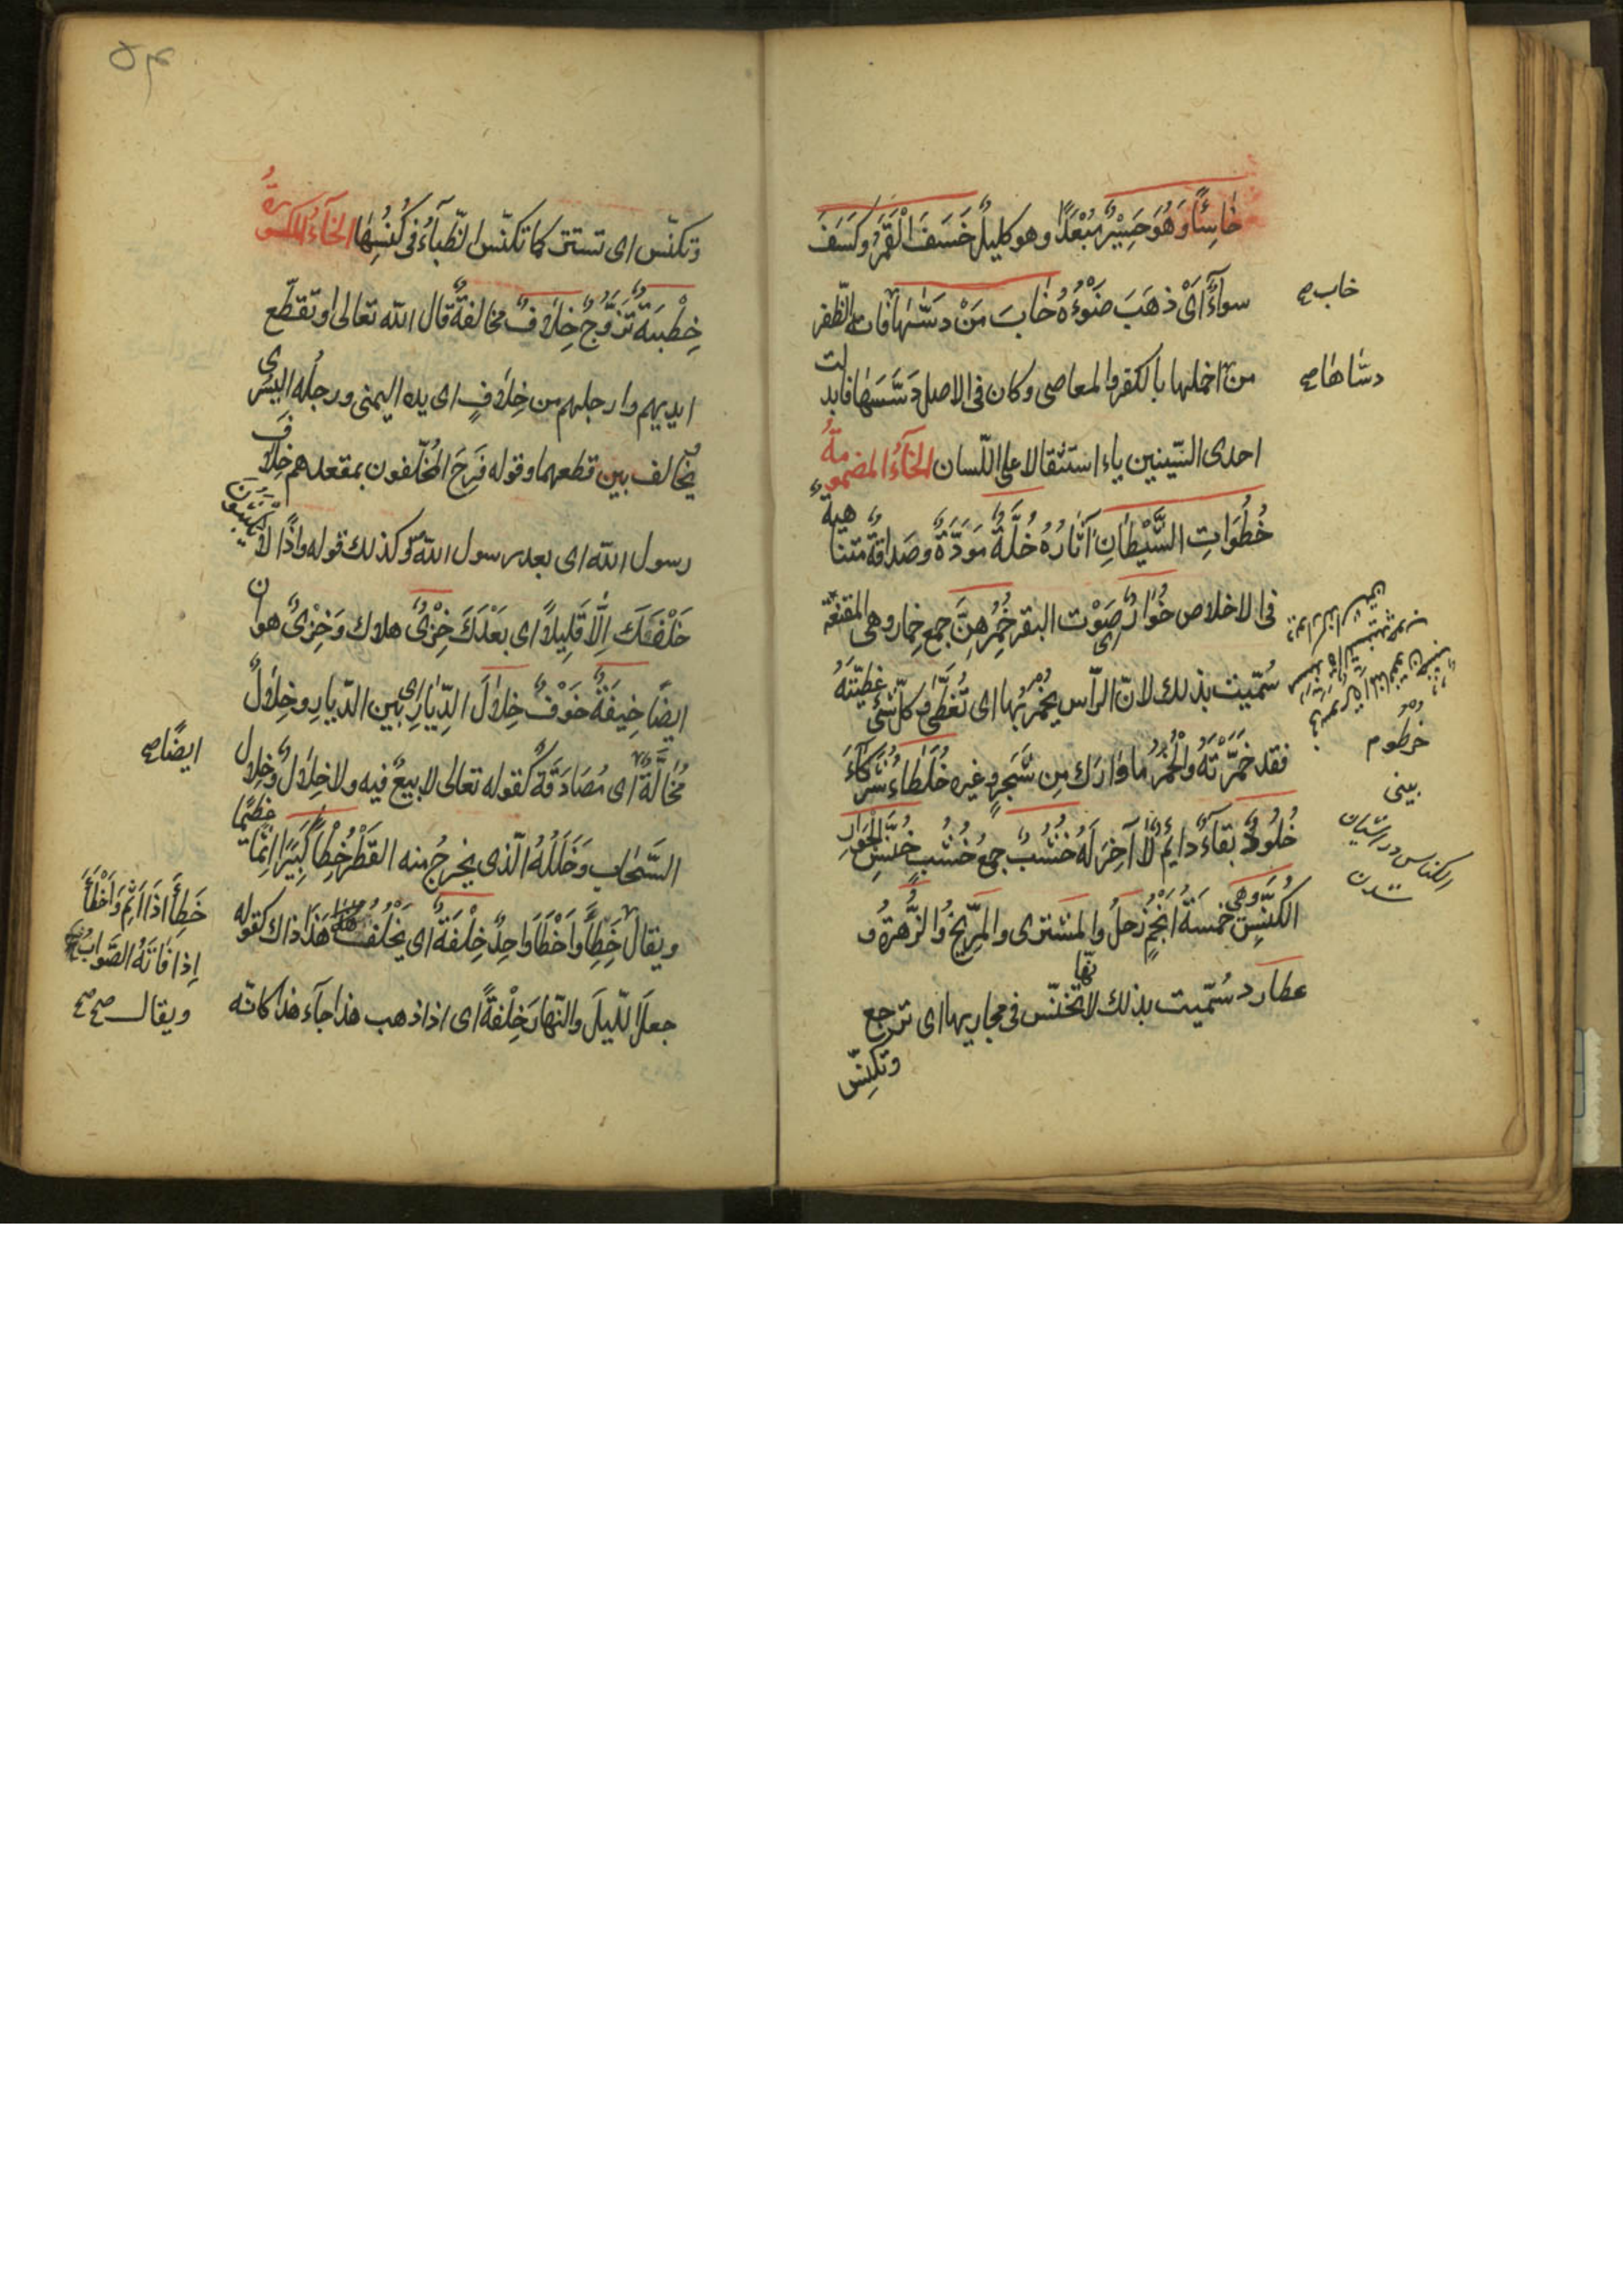 خَاسِئًا وَهُوَ حَسِيْرٌ مُبْعَدًا وهو كليلٌ خَسَفَ الْقَمَرُ وكَسَفَ
سواءٌ اَىْ ذهَبَ ضَوْءُهُ خَابَ مَنْ دَسّٰىهَا فات الظّفر
من اخملها بالكفر والمعاصى وكان فى الاصل دَسَّسَهَا فابدلت
احدى السّينين ياء استثقالا على اللّسان الخآءُ المضمومةُ
خُطُوَاتِ الشَّيْطَانِ آثَارُهُ خُلَّةٌ مَوَدَّةٌ وَصَدَاقَةٌ متناهية
فى الاخلاص خُوَارٌ اى صَوْت البقر خُمُرِهِنَّ جمع خِمار وهى المقنعة
سُمّيت بذلك لانّ الرّأس يخمّر بها اى تُغَطّٰى وكلّ شئ غطيّتَهُ
فقد خَمَّرْتَهُ والْخَمَرُ ما وَارَاكَ مِن شَجَرٍ وغيره خُلَطَاءُ شُرَكَاءَ
خُلُودٌ بقاءٌ دايمٌ لَا آخِرَ لَهُ خُشُبٌ جمعُ خُشُبٍ خُنَّسِ الْجَوَارِ
الْكُنَّسِ وهى خمسَةُ اَنْجُمٍ زُحَلُ والمشترى والمرّيخُ والزُّهَرَةُ و
عطارد سُمّيت بذلك لانّها تخنّس فى مجاريها اى ترجع
وتكنِسّ
خاب صح
دسّاها صح
خرطوم
بينى
الكناس در
شدن
٥٣
وتكنّس اى تستتر كما تكنّس الظّباءُ فى كُنُسِهَا الخآءُ المكسورةُ
خِطْبَةٌ تَزَوُّجٌ خِلَافٌ مخالفةٌ قال الله تعالى او تقطّع
ايديهم وارجلهم من خِلافٍ اى يده اليمنى ورجلُه اليسرى
يُخالف بين قطعهما وقوله فَرِحَ المُخَلّفون بمقعدهم خِلَافَ
رسول الله اى بعد رسول الله وكذلك قوله واذًا لا يَلْبَثُونَ
خَلْفَكَ اِلَّا قَلِيلًا اى بَعْدَكَ خِزْىٌ هلاك وَخِزْىٌ هوان
ايضًا خِيفَةٌ خَوْفٌ خِلَالَ الدِّيَارِ اى بين الدّيارِ وخِلالٌ
مُخَالَّةٌ اى مُصَادَقَةٌ كقوله تعالى لا بيعٌ فيه ولا خِلَالٌ وَخِلال
السَّحاب وَخَلَلُهُ الّذى يخرجُ منه القَطْرُ خِطْأً كَبِيرًا اثمًا عظيمًا
ويقال خَطِئَ وَاَخْطَأَ وَاحِدٌ خِلْفَةً اى يَخْلُفُ هَذَا ذاك كقوله
جعلَ اللّيلَ والنّهارَ خِلْفَةً اى اذا ذهب هذا جآء هذا كانّه
ايضًا صح
خَطِأَ اذا اَثِمَ وَاَخْطَأَ
اِذا فَاتَهُ الصَّوَابُ صح
ويقال صح صح